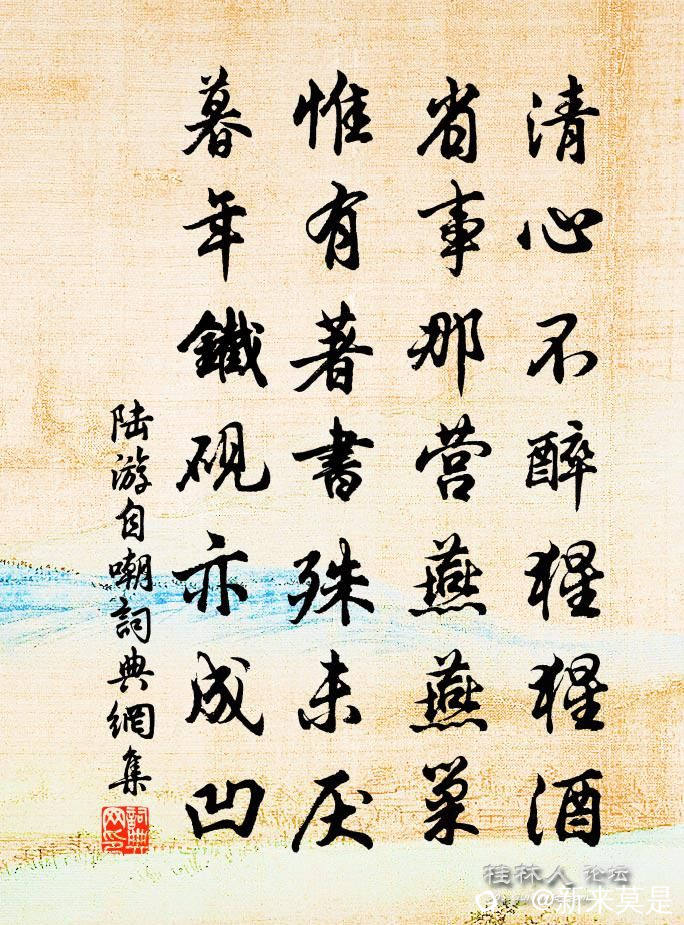 清心不醉猩猩酒
省事那营燕燕巢
惟有著書殊未厌
暮年鐵砚亦成凹
陆游自嘲詞典網集
桂林人 论坛
@新来莫是